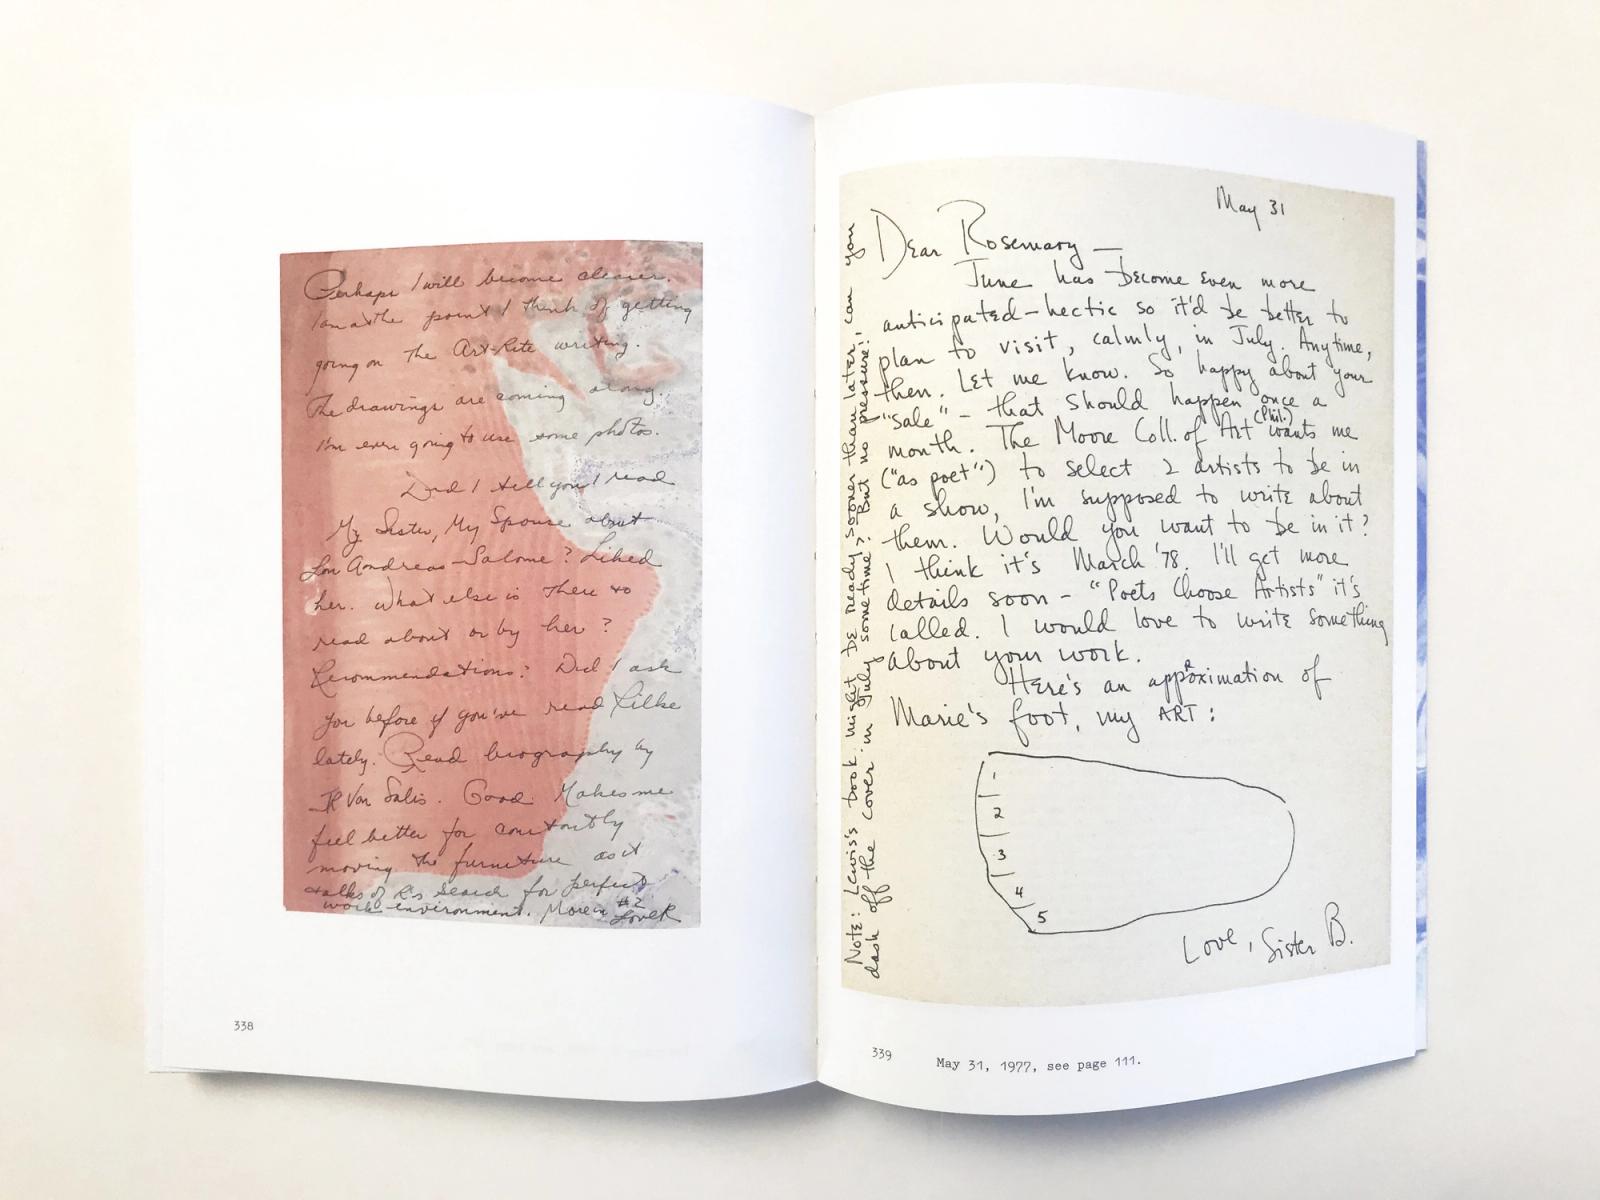 Perhaps I will become clearer.
I am at the point I think of getting
going on the Art-Rite writing.
The drawings are coming along.
I'm even going to use some photos.
Did I tell you I read
My Sister, My Spouse about
Lou Andreas-Salome? Liked
her. What else is there to
read about or by her?
Recommendations? Did I ask
you before if you've read Rilke
lately. Read biography by
JR Von Salis. Good. Makes me
feel better for constantly
moving the furniture as it
talks of R's search for perfect
work environment. More in #2
Love R
338
May 31
Dear Rosemary —
June has become even more
anticipated-hectic so it'd be better to
plan to visit, calmly, in July. Anytime,
then. Let me know. So happy about your
"sale" - that should happen once a
month. The Moore Coll. of Art (Phil.) wants me
("as poet") to select 2 artists to be in
a show, I'm supposed to write about
them. Would you want to be in it?
I think it's March '78. I'll get more
details soon - "Poets Choose Artists" it's
called. I would love to write something
about your work.
Here's an approximation of
Marie's foot, my ART:
1
2
3
4
5
Love, Sister B.
Note: Lewis's book might be ready sooner than later, can you
dash off the cover in July sometime? But no pressure!!
339
May 31, 1977, see page 111.